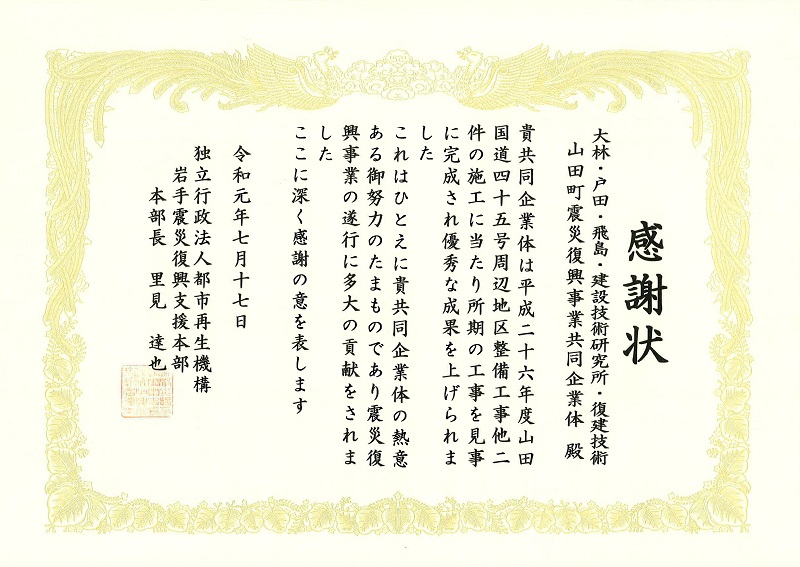 感謝状
大林・戸田・飛島・建設技術研究所・復建技術
山田町震災復興事業共同企業体 殿
貴共同企業体は平成二十六年度山田
国道四十五号周辺地区整備工事他二
件の施工に当たり所期の工事を見事
に完成され優秀な成果を上げられま
した
これはひとえに貴共同企業体の熱意
ある御努力のたまものであり震災復
興事業の遂行に多大の貢献をされま
した
ここに深く感謝の意を表します
令和元年七月十七日
独立行政法人都市再生機構
岩手震災復興支援本部
本部長 里見 達也